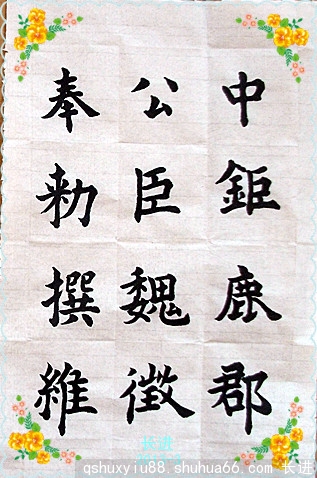 中鉅鹿郡
公臣魏徵
奉勑撰維
长进
qshuxyiu88.shuhua66.com/长进